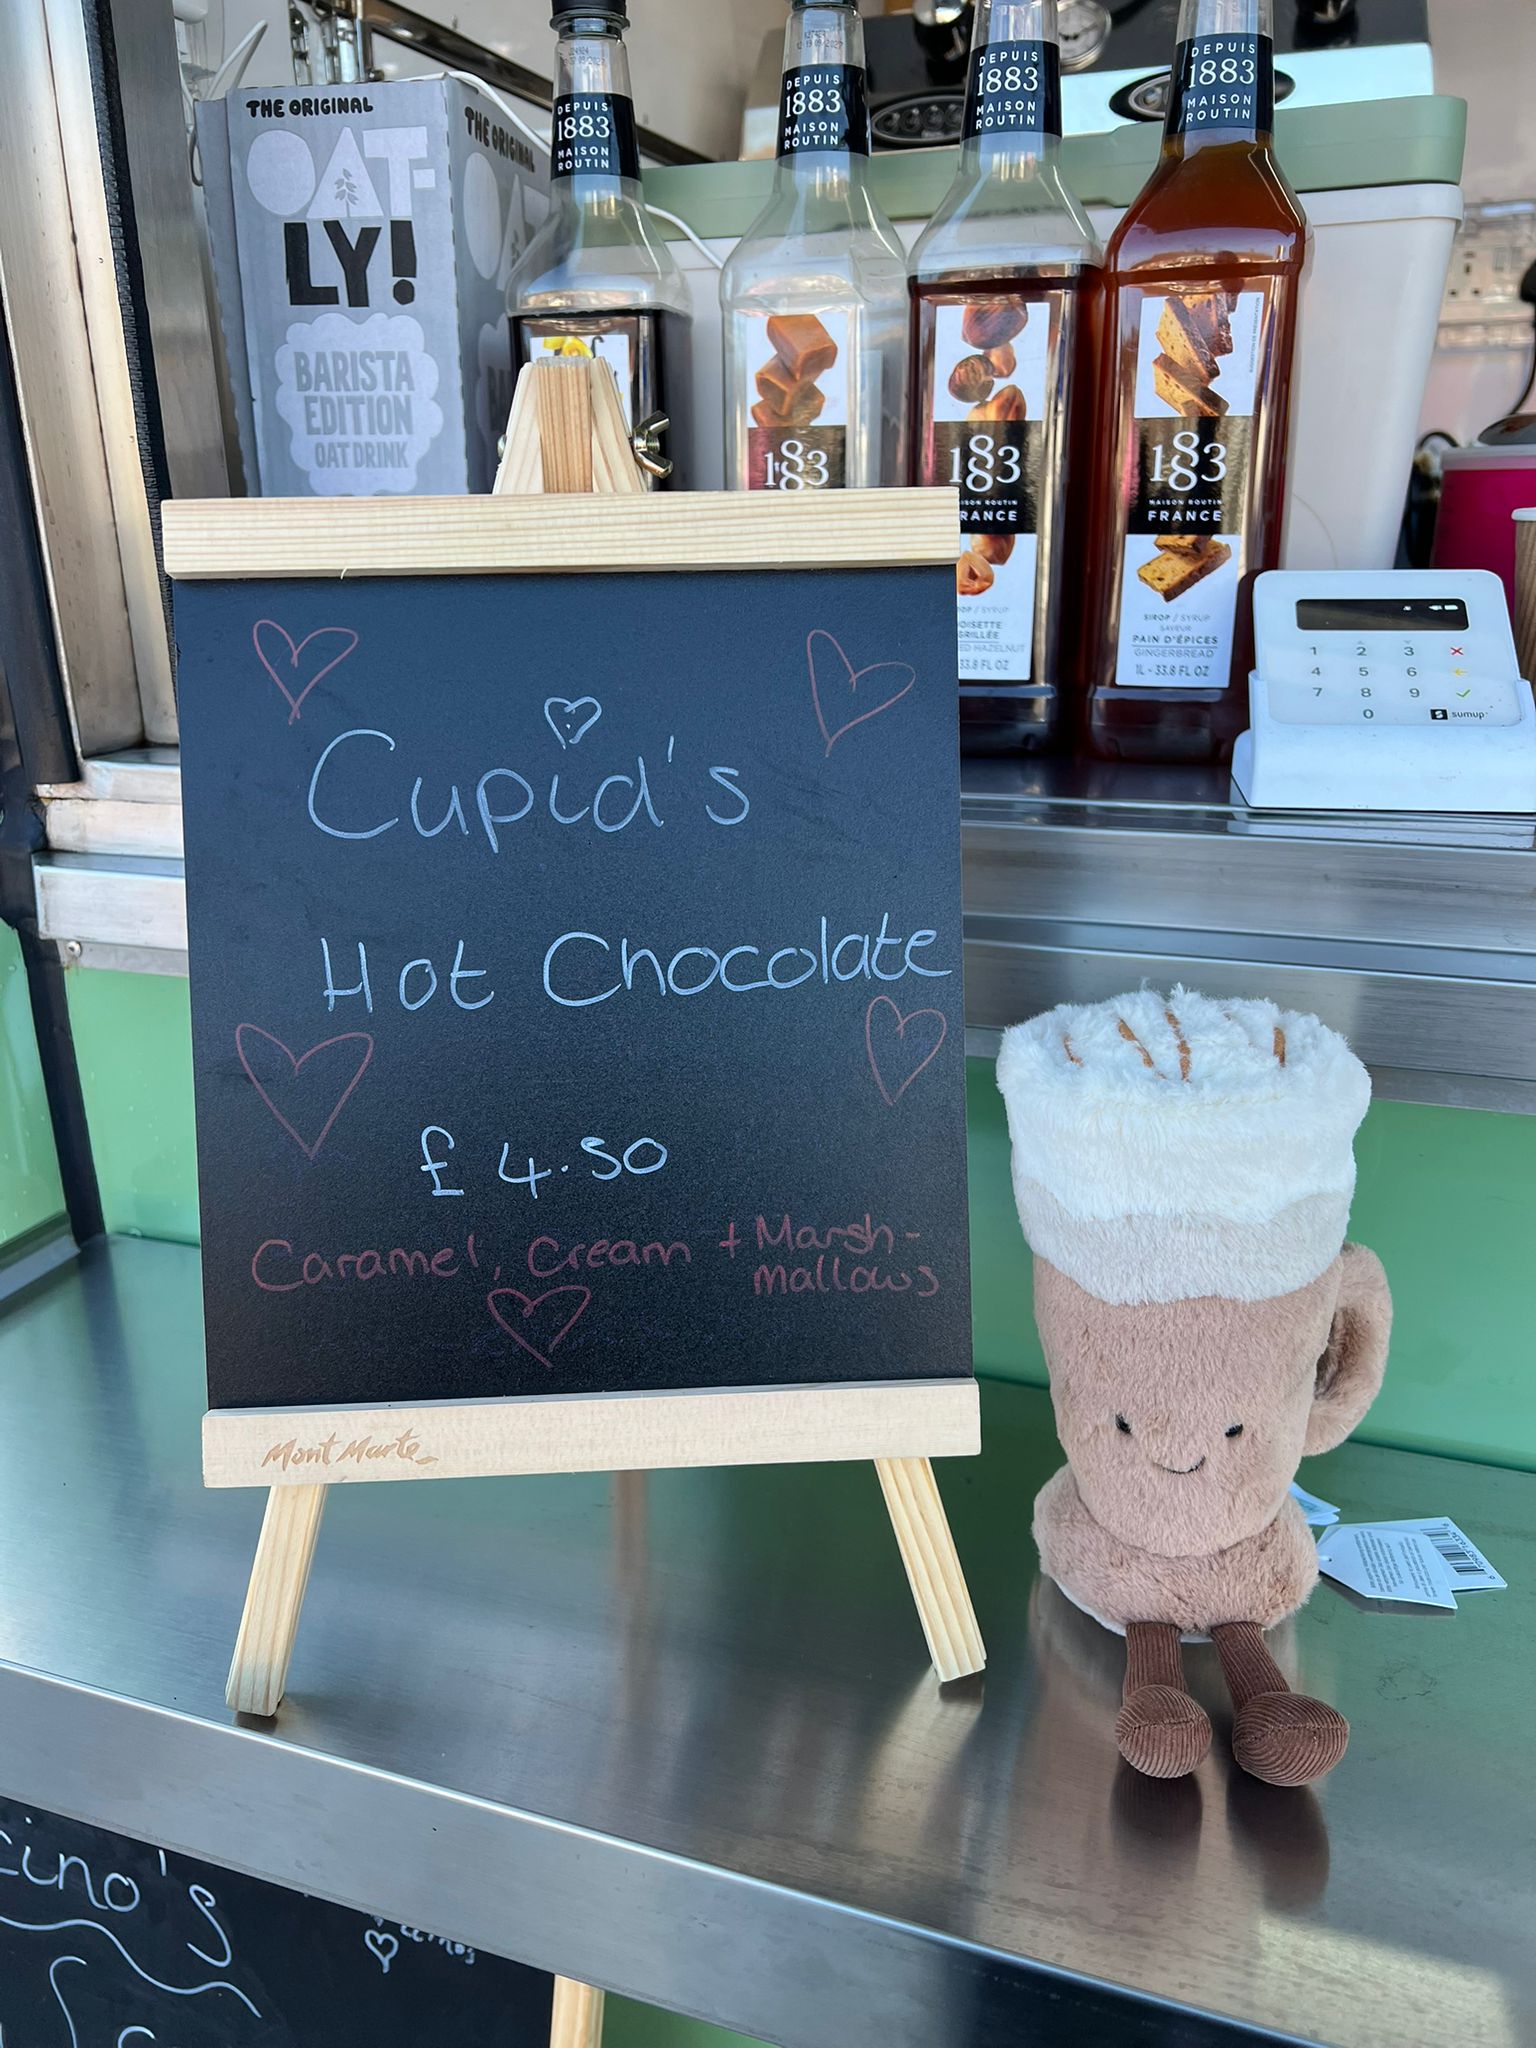 THE ORIGINAL
OAT-
LY!
BARISTA
EDITION
OAT DRINK
THE ORIGINAL
DEPUIS
1883
MAISON
ROUTIN
DEPUIS
1883
MAISON
ROUTIN
1883
DEPUIS
1883
MAISON
ROUTIN
1883
MAISON ROUTIN
FRANCE
SIROP / SYRUP
NOISETTE
GRILLÉE
HAZELNUT
33.8 FL OZ
DEPUIS
1883
MAISON
ROUTIN
1883
MAISON ROUTIN
FRANCE
SIROP / SYRUP
SAVEUR
PAIN D'ÉPICES
GINGERBREAD
1L - 33.8 FL OZ
1 2 3
4 5 6
7 8 9
0
sumup
Cupid's
Hot Chocolate
£4.50
Caramel, Cream + Marsh-
mallows
Mont Marte
cino's